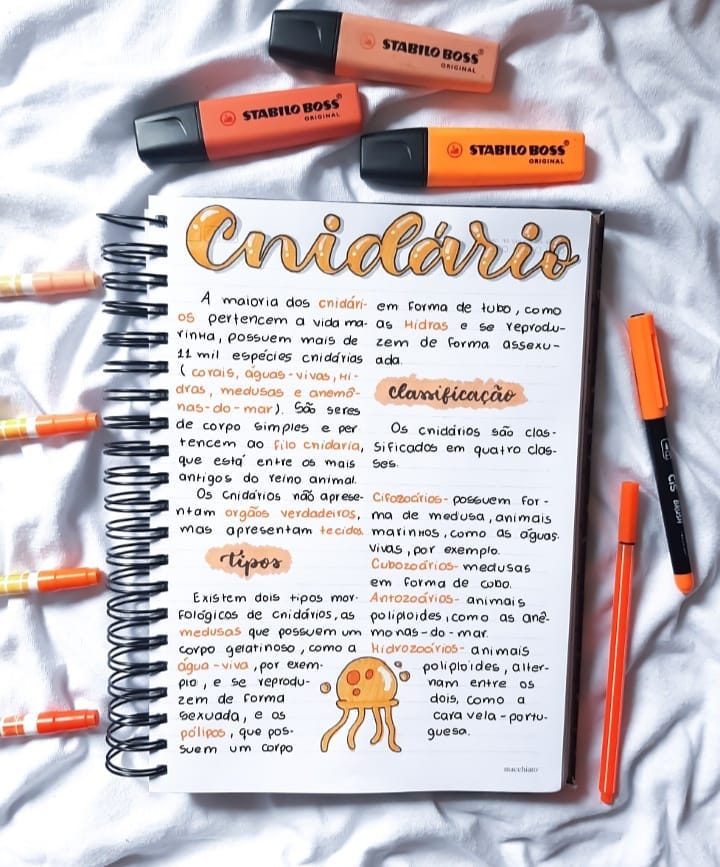 STABILO BOSS
ORIGINAL
STABILO BOSS
ORIGINAL
STABILO BOSS
ORIGINAL
Cnidário
A maioria dos cnidári-
os pertencem a vida ma-
rinha, possuem mais de
11 mil espécies cnidárias
(corais, águas-vivas, hi-
dras, medusas e anemô-
nas-do-mar). São seres
de corpo simples e per
tencem ao filo cnidaria,
que está entre os mais
antigos do reino animal.
Os cnidários não aprese-
ntam orgãos verdadeiros,
mas apresentam tecidos.
tipos
Existem dois tipos mor-
fológicos de cnidários, as
medusas que possuem um
corpo gelatinoso, como a
água-viva, por exem-
plo, e se reprodu-
zem de forma
sexuada, e os
pólipos, que pos-
suem um corpo
em forma de tubo, como
as Hidras e se reprodu-
zem de forma assexu-
ada.
classificação
Os cnidários são clas-
sificados em quatro clas-
ses.
Cifozoários- possuem for-
ma de medusa, animais
marinhos, como as águas-
vivas, por exemplo.
Cubozoários- medusas
em forma de cubo.
Antozoários- animais
poliploides, como as anê-
monas-do-mar.
Hidrozoários- animais
poliploides, alter-
nam entre os
dois, como a
caravela-portu-
guesa.
macchiato
CiS
BRUSH